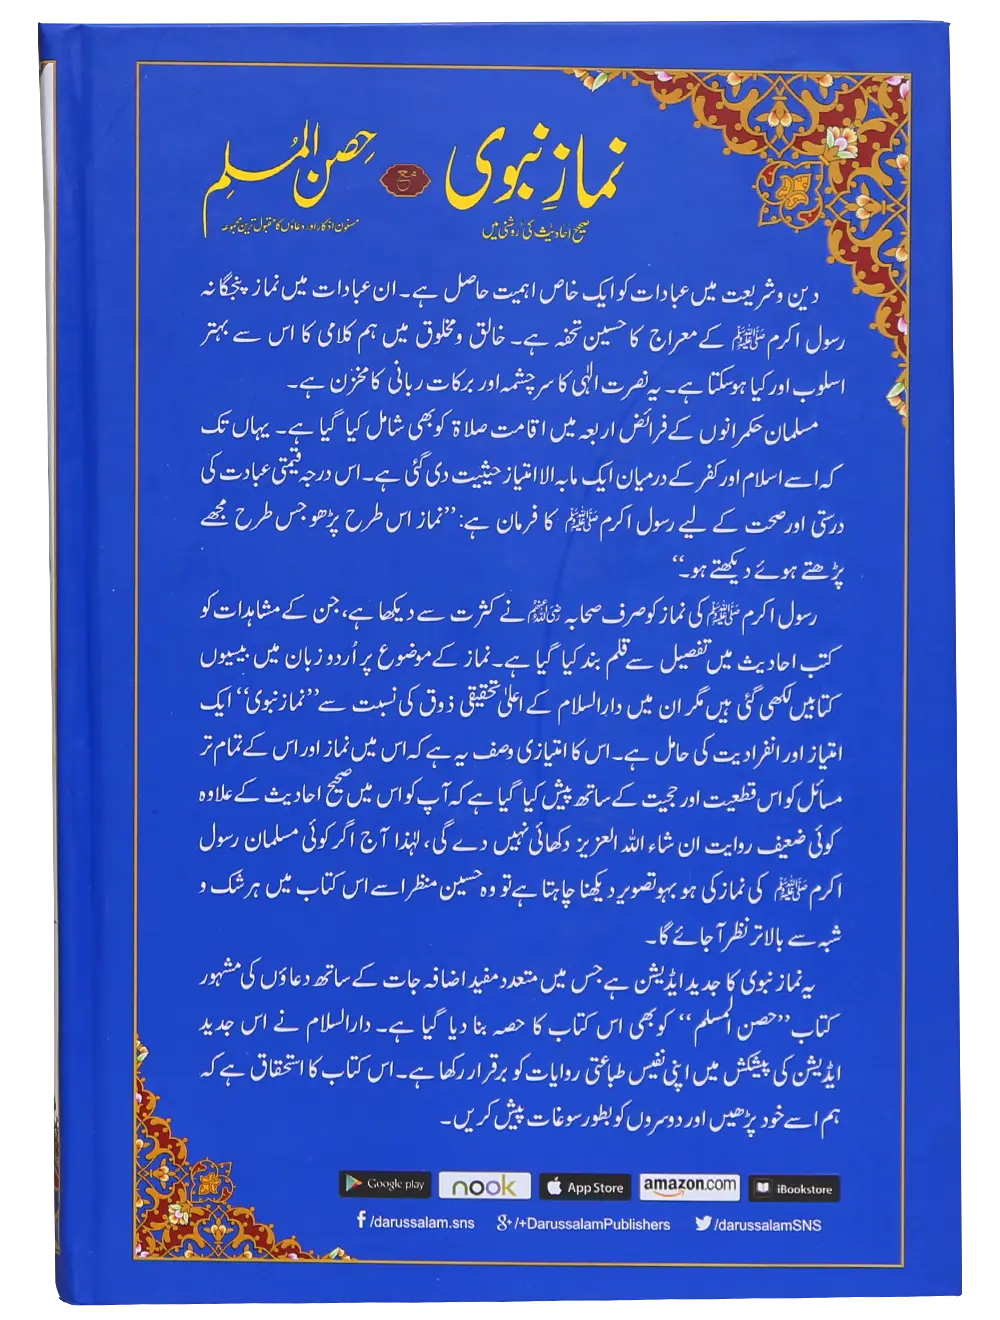 نمازِ نبوی مع حِصن المُسلِم
صحیح احادیث کی روشنی میں
مسنون اذکار اور دعاؤں کا مقبول ترین مجموعہ
دین و شریعت میں عبادات کو ایک خاص اہمیت حاصل ہے۔ ان عبادات میں نماز پنجگانہ
رسول اکرم ﷺ کے معراج کا حسین تحفہ ہے۔ خالق و مخلوق میں ہم کلامی کا اس سے بہتر
اسلوب اور کیا ہوسکتا ہے۔ یہ نصرت الٰہی کا سرچشمہ اور برکات ربانی کا مخزن ہے۔
مسلمان حکمرانوں کے فرائض اربعہ میں اقامت صلاۃ کو بھی شامل کیا گیا ہے۔ یہاں تک
کہ اسے اسلام اور کفر کے درمیان ایک مابہ الامتیاز حیثیت دی گئی ہے۔ اس درجہ قیمتی عبادت کی
درستی اور صحت کے لیے رسول اکرم ﷺ کا فرمان ہے: ’’نماز اس طرح پڑھو جس طرح مجھے
پڑھتے ہوئے دیکھتے ہو۔‘‘
رسول اکرم ﷺ کی نماز کو صرف صحابہ رضی اللہ عنہم نے کثرت سے دیکھا ہے، جن کے مشاہدات کو
کتب احادیث میں تفصیل سے قلم بند کیا گیا ہے۔ نماز کے موضوع پر اُردو زبان میں بیسیوں
کتابیں لکھی گئی ہیں مگر ان میں دارالسلام کے اعلیٰ تحقیقی ذوق کی نسبت سے ’’نماز نبوی‘‘ ایک
امتیاز اور انفرادیت کی حامل ہے۔ اس کا امتیازی وصف یہ ہے کہ اس میں نماز اور اس کے تمام تر
مسائل کو اس قطعیت اور حجیت کے ساتھ پیش کیا گیا ہے کہ آپ کو اس میں صحیح احادیث کے علاوہ
کوئی ضعیف روایت ان شاء اللہ العزیز دکھائی نہیں دے گی، لہٰذا آج اگر کوئی مسلمان رسول
اکرم ﷺ کی نماز کی ہو بہو تصویر دیکھنا چاہتا ہے تو وہ حسین منظر اسے اس کتاب میں ہر شک و
شبہ سے بالاتر نظر آ جائے گا۔
یہ نماز نبوی کا جدید ایڈیشن ہے جس میں متعدد مفید اضافہ جات کے ساتھ دعاؤں کی مشہور
کتاب ’’حصن المسلم‘‘ کو بھی اس کتاب کا حصہ بنا دیا گیا ہے۔ دارالسلام نے اس جدید
ایڈیشن کی پیشکش میں اپنی نفیس طباعتی روایات کو برقرار رکھا ہے۔ اس کتاب کا استحقاق ہے کہ
ہم اسے خود پڑھیں اور دوسروں کو بطور سوغات پیش کریں۔
Google play nook App Store amazon.com iBookstore
/darussalam.sns /+DarussalamPublishers /darussalamSNS